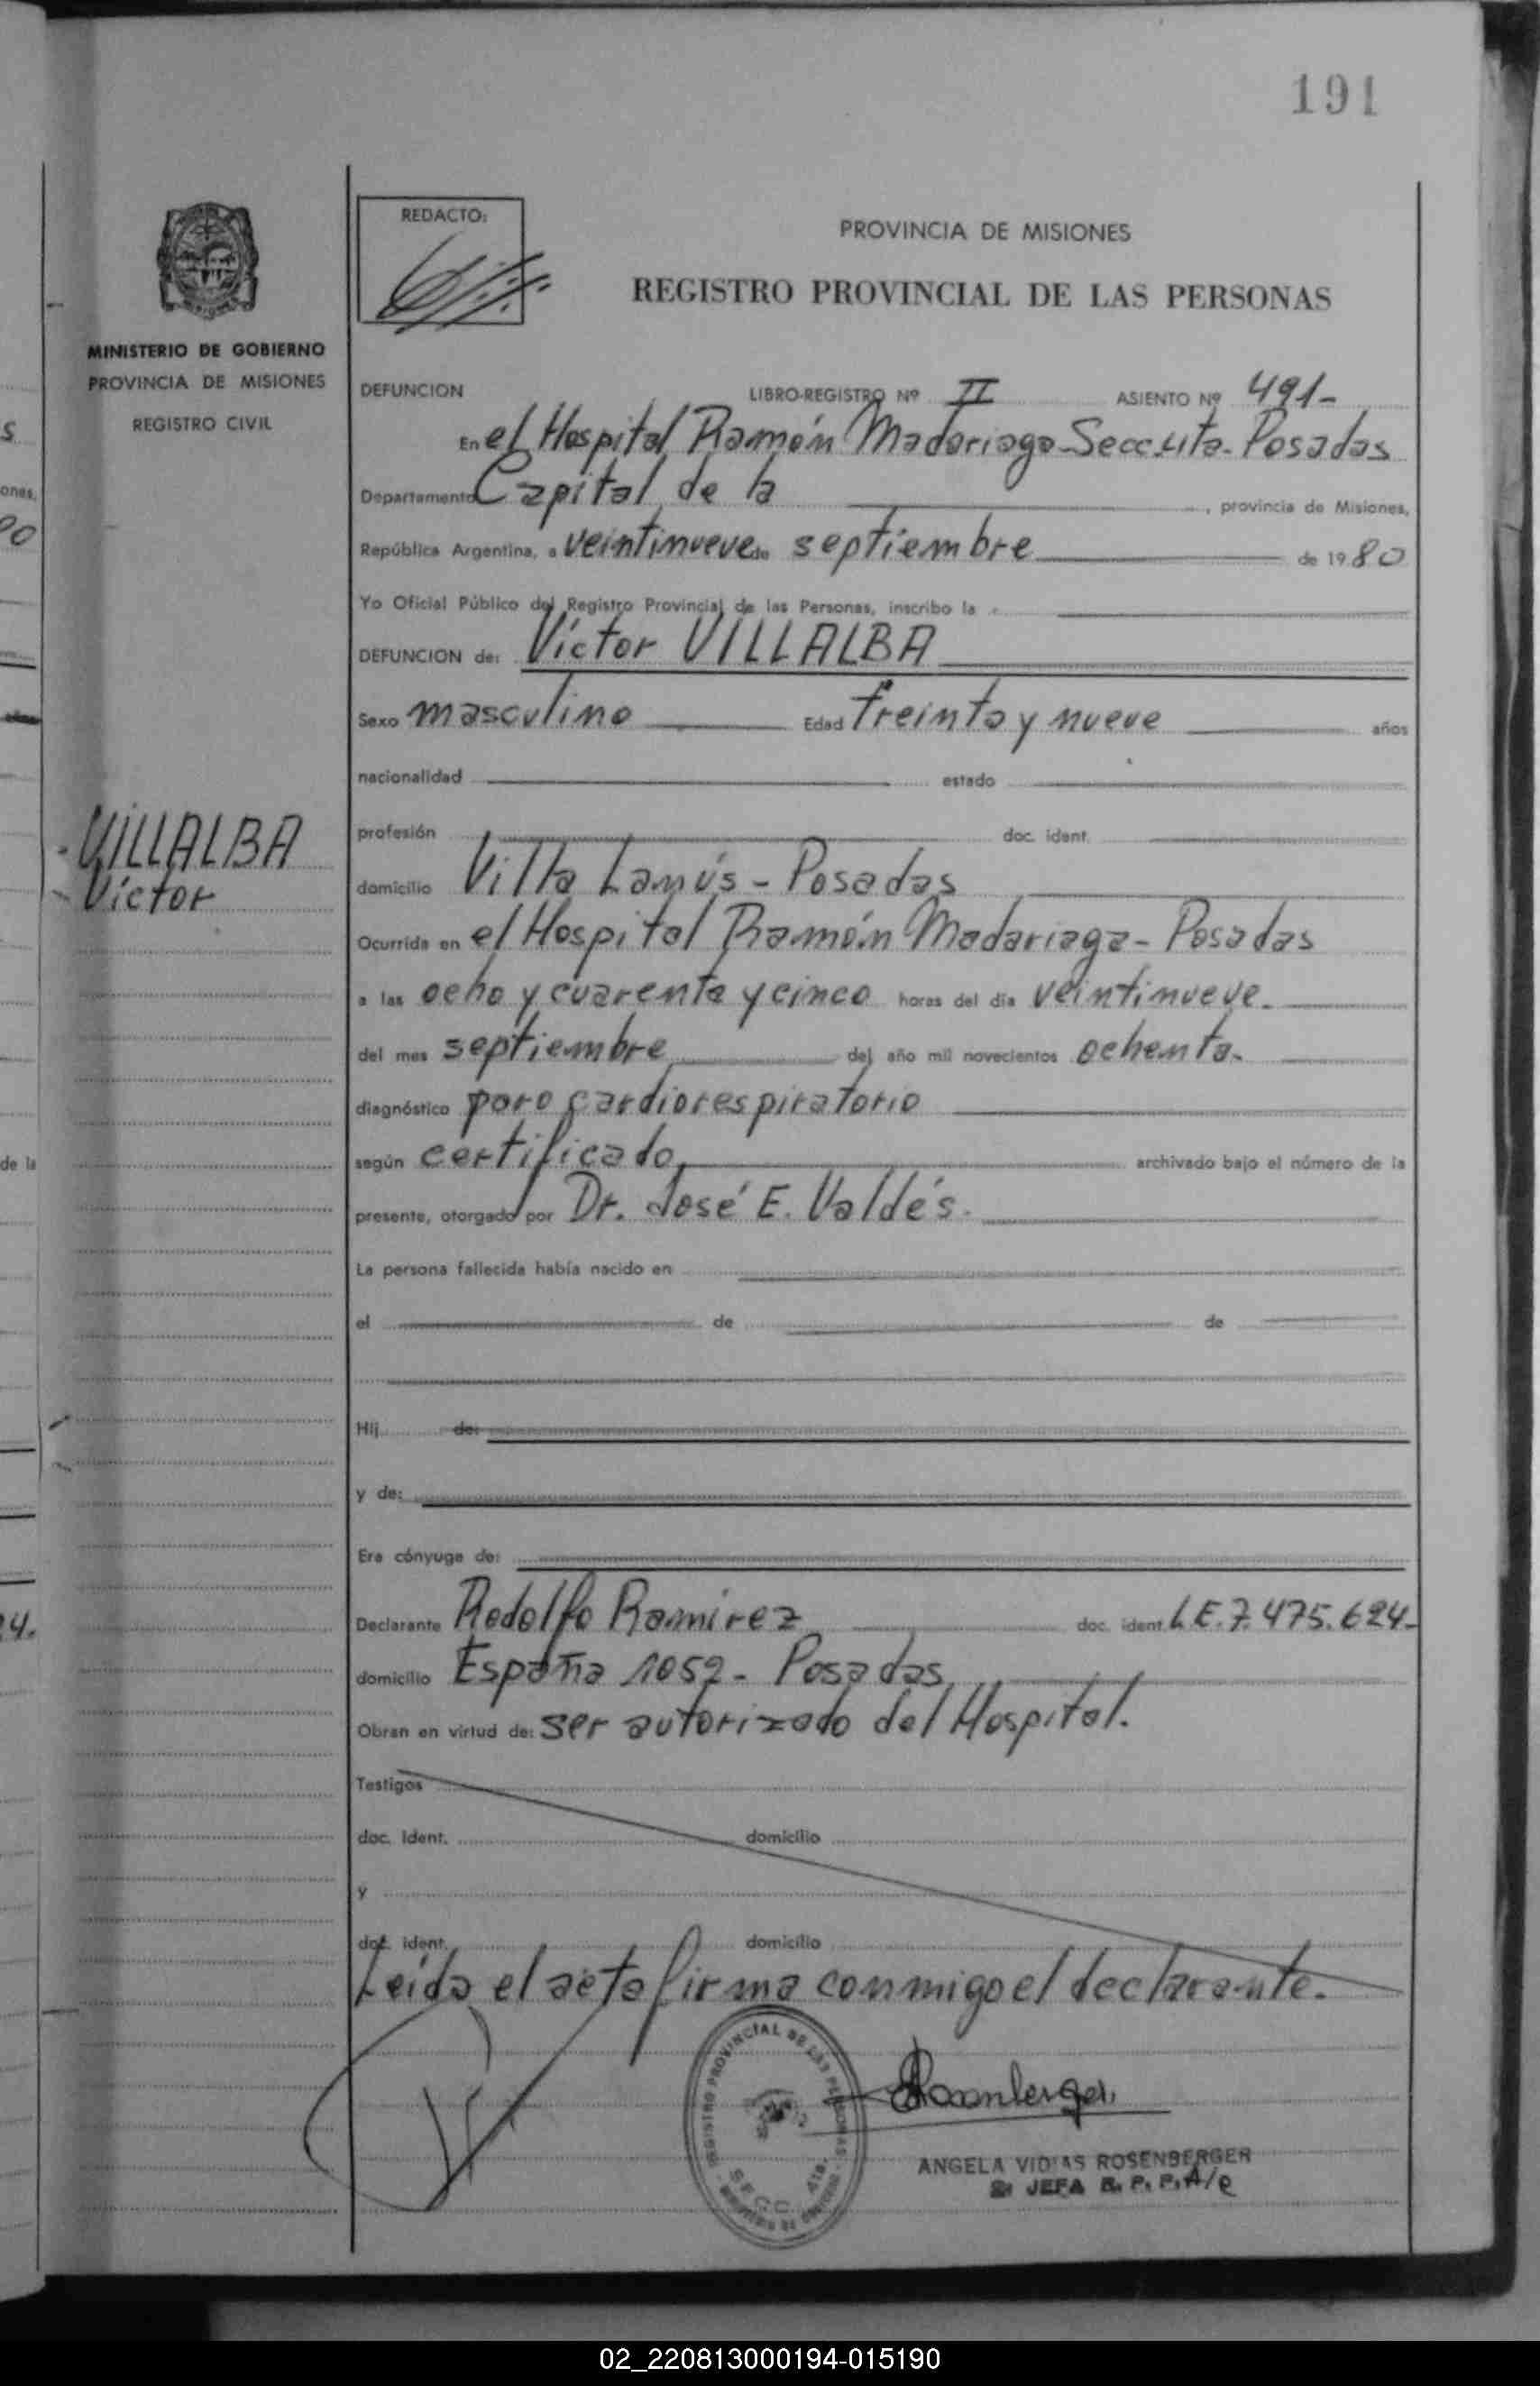 191
REDACTO:
PROVINCIA DE MISIONES
REGISTRO PROVINCIAL DE LAS PERSONAS
MINISTERIO DE GOBIERNO
PROVINCIA DE MISIONES
REGISTRO CIVIL
DEFUNCION LIBRO-REGISTRO Nº II ASIENTO Nº 491-
En el Hospital Ramón Madariaga-Secc. 4ta- Posadas
Departamento Capital de la , provincia de Misiones,
República Argentina, a veintinueve de septiembre de 1980
Yo Oficial Público del Registro Provincial de las Personas, inscribo la
DEFUNCION de: Víctor VILLALBA
Sexo masculino Edad treinta y nueve años
nacionalidad estado
VILLALBA
Víctor
profesión doc. ident.
domicilio Villa Lanús - Posadas
Ocurrida en el Hospital Ramón Madariaga- Posadas
a las ocho y cuarenta y cinco horas del día veintinueve.
del mes septiembre del año mil novecientos ochenta.
diagnóstico paro cardiorespiratorio
según certificado, archivado bajo el número de la
presente, otorgado por Dr. José E. Valdés.
La persona fallecida había nacido en
el de de
Hij de:
y de:
Era cónyuge de:
Declarante Rodolfo Ramirez doc. ident. L.E.7.475.624-
domicilio España 1052- Posadas
Obran en virtud de: ser autorizado del Hospital.
Testigos
doc. ident. domicilio
y
doc. ident. domicilio
Leída el acta firma conmigo el declarante.
REGISTRO PROVINCIAL DE LAS PERSONAS
Rosenberger
ANGELA VIDIAS ROSENBERGER
JEFA R. P. P. A/c
02_220813000194-015190